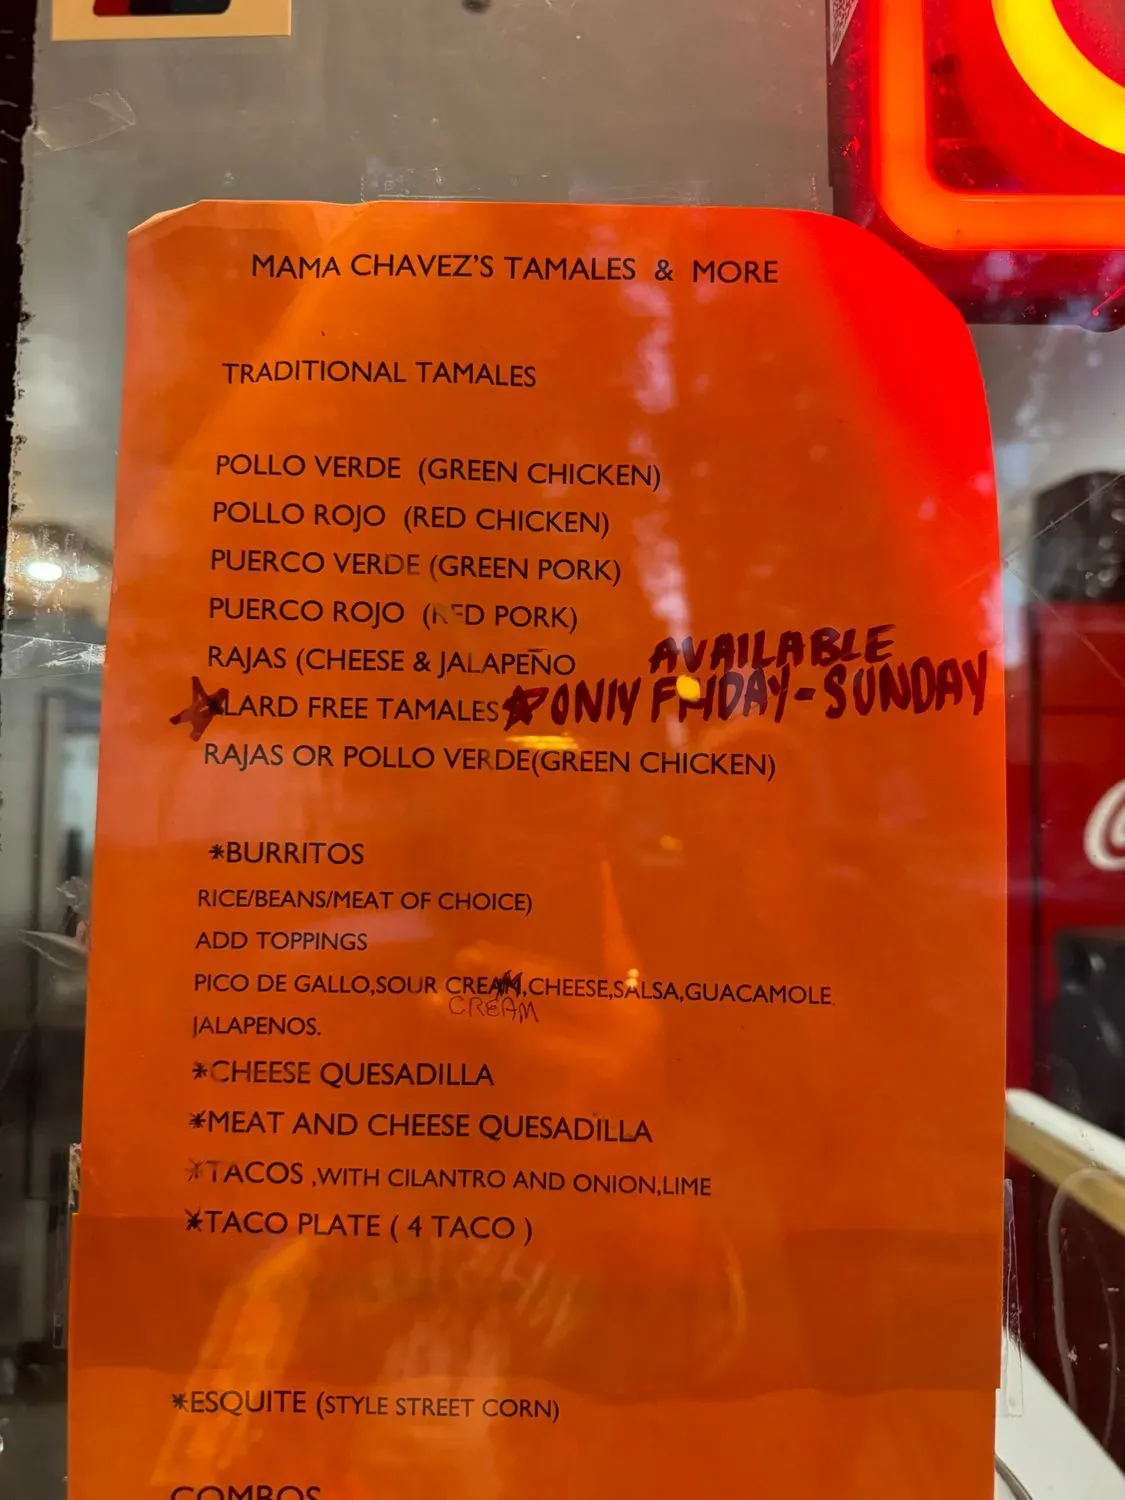 MAMA CHAVEZ'S TAMALES & MORE
TRADITIONAL TAMALES
POLLO VERDE (GREEN CHICKEN)
POLLO ROJO (RED CHICKEN)
PUERCO VERDE (GREEN PORK)
PUERCO ROJO (RED PORK)
RAJAS (CHEESE & JALAPEÑO
AVAILABLE
LARD FREE TAMALES ONLY FRIDAY-SUNDAY
RAJAS OR POLLO VERDE(GREEN CHICKEN)
*BURRITOS
RICE/BEANS/MEAT OF CHOICE)
ADD TOPPINGS
PICO DE GALLO,SOUR CREAM,CHEESE,SALSA,GUACAMOLE
CREAM
JALAPENOS.
*CHEESE QUESADILLA
*MEAT AND CHEESE QUESADILLA
*TACOS ,WITH CILANTRO AND ONION,LIME
*TACO PLATE ( 4 TACO )
*ESQUITE (STYLE STREET CORN)
COMBOS